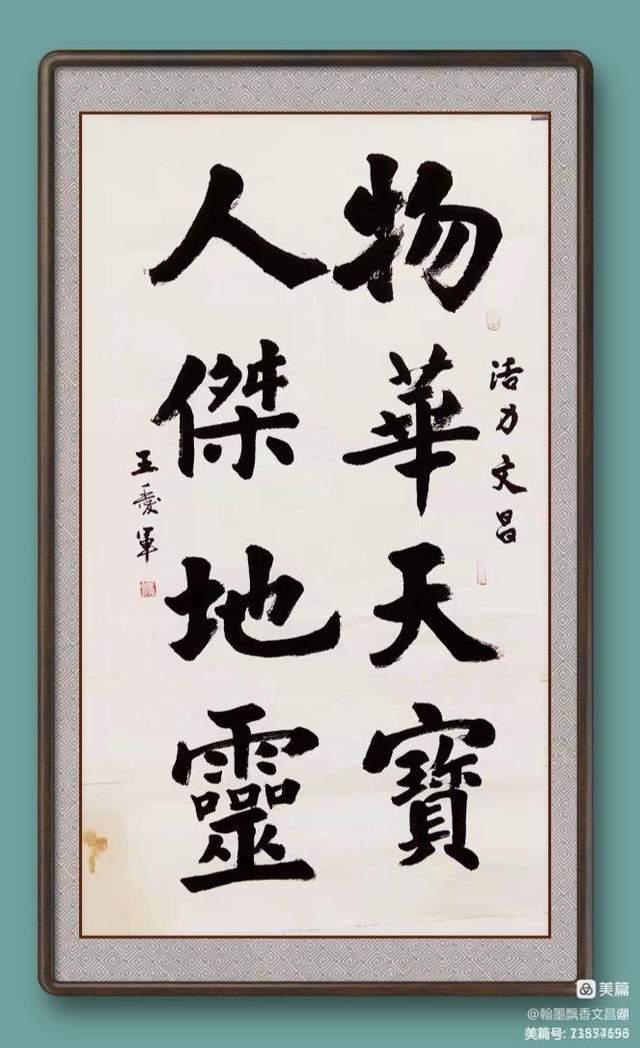 活力文昌
物華天寶
人傑地靈
王愛軍
美篇
@翰墨飘香文昌阁
美篇号: